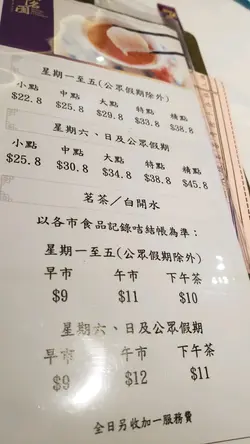 名園
星期一至五(公眾假期除外)
小點 中點 大點 特點 精點
$22.8 $25.8 $29.8 $33.8 $38.8
星期六、日及公眾假期
小點 中點 大點 特點 精點
$25.8 $30.8 $34.8 $38.8 $45.8
茗茶/白開水
以各市食品記錄咭結帳為準:
星期一至五(公眾假期除外)
早市 午市 下午茶
$9 $11 $10
星期六、日及公眾假期
早市 午市 下午茶
$9 $12 $11
全日另收加一服務費